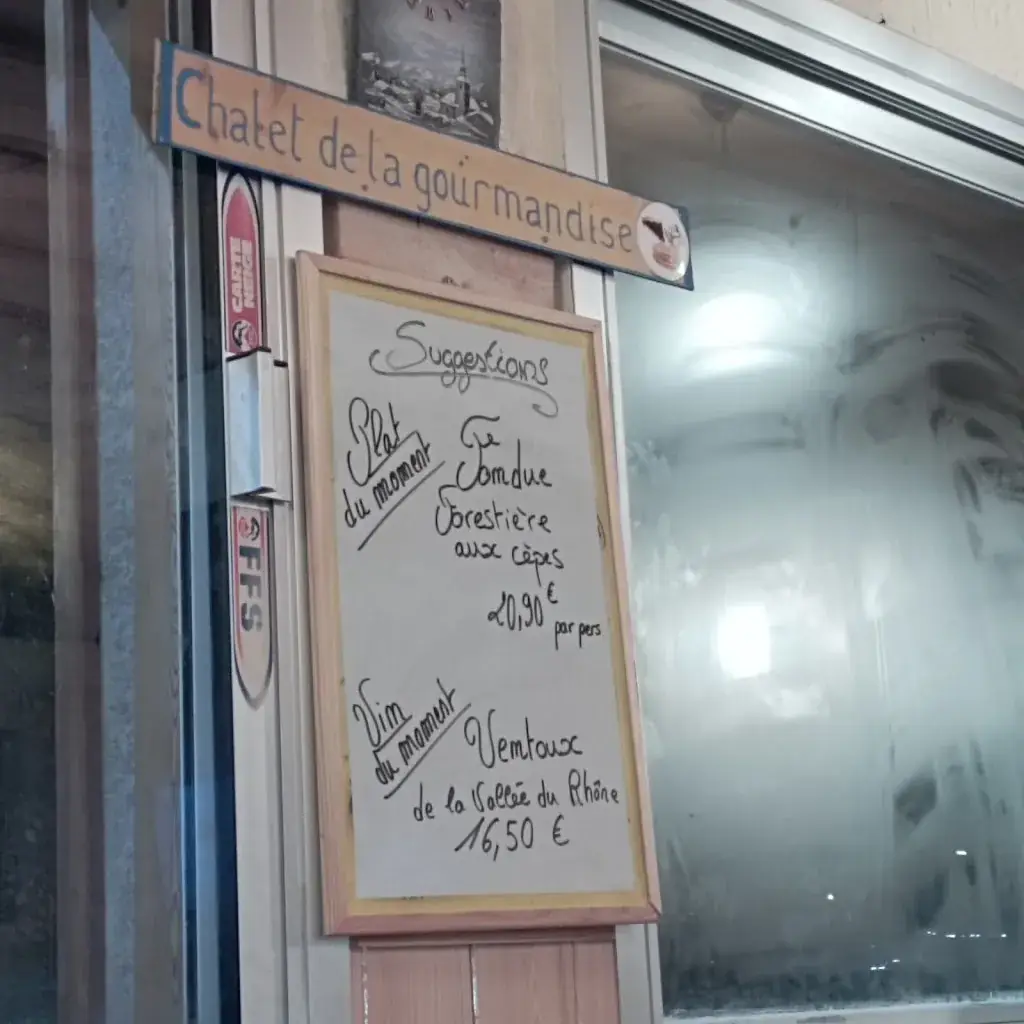 Chalet de la gourmandise
CARTE
NEIGE
FFS
Suggestions
Plat
du moment
Fondue
Forestière
aux cèpes
20,90 €
par pers
Vin
du moment
Ventoux
de la Vallée du Rhône
16,50 €